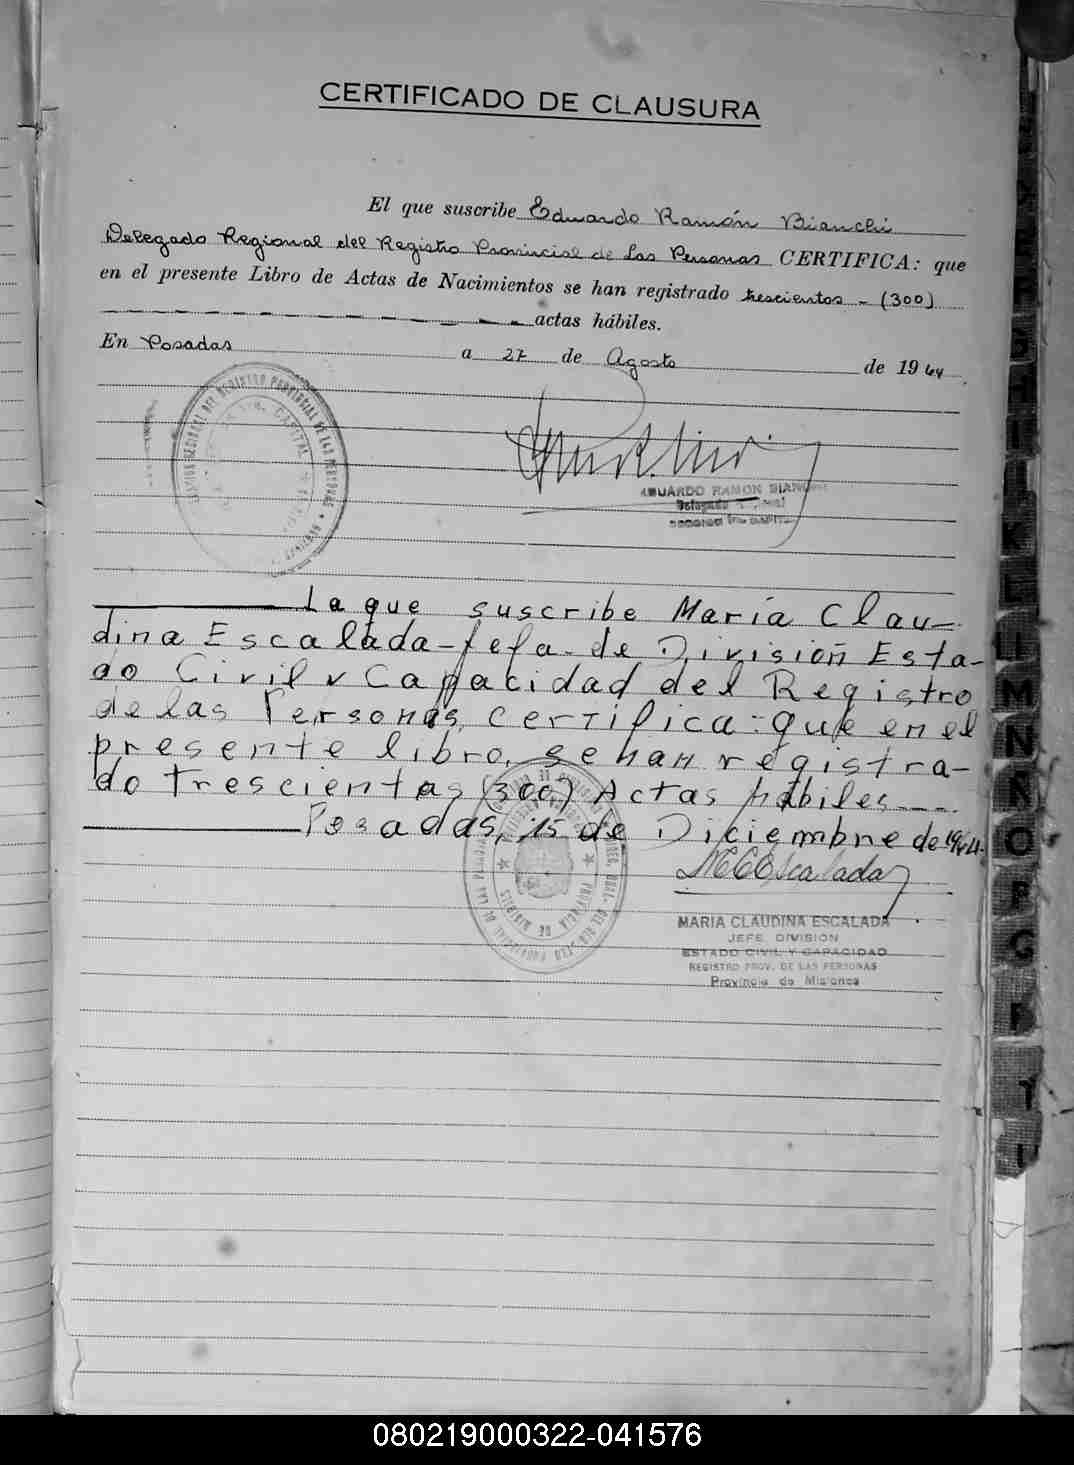 CERTIFICADO DE CLAUSURA
El que suscribe Eduardo Ramón Bianchi
Delegado Regional del Registro Provincial de las Personas CERTIFICA: que
en el presente Libro de Actas de Nacimientos se han registrado trescientos - (300)
actas hábiles.
En Posadas a 27 de Agosto de 1964
EDUARDO RAMON BIANCHI
Delegado
La que suscribe María Clau-
dina Escalada - Jefa - de División Esta-
do Civil y Capacidad del Registro
de las Personas, certifica: que en el
presente libro, se han registra-
do trescientas (300) Actas hábiles
Posadas, 15 de Diciembre de 1964.
MCEscalada
MARIA CLAUDINA ESCALADA
JEFE DIVISION
ESTADO CIVIL Y CAPACIDAD
REGISTRO PROV. DE LAS PERSONAS
Provincia de Misiones
L
M
N
Ñ
O
P
R
T
080219000322-041576